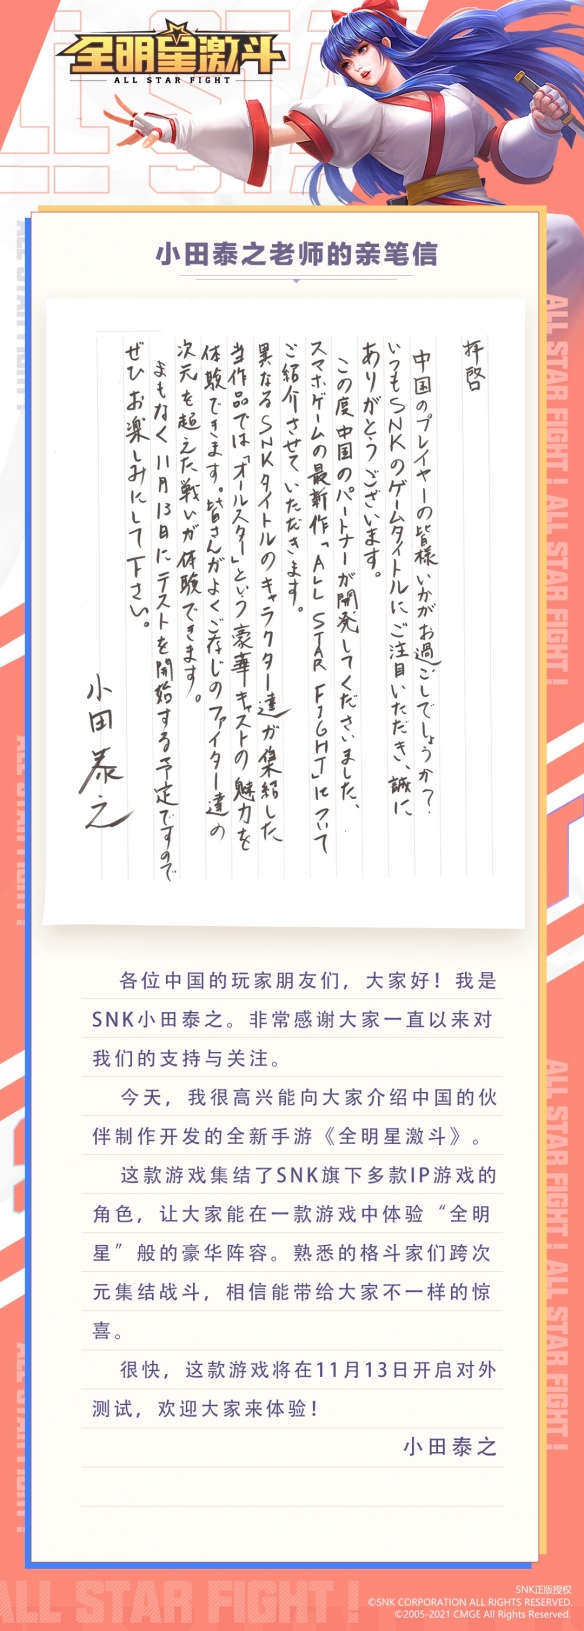 全明星激斗
ALL STAR FIGHT
小田泰之老师的亲笔信
拝啓
中国のプレイヤーの皆様いかがお過ごしでしょうか？
いつもSNKのゲームタイトルにご注目いただき、誠に
ありがとうございます。
この度中国のパートナーが開発してくださいました、
スマホゲームの最新作「ALL STAR FIGHT」について
ご紹介させていただきます。
異なるSNKタイトルのキャラクター達が集結した
当作品では「オールスター」という豪華キャストの魅力を
体験できます。皆さんがよくご存じのファイター達の
次元を超えた戦いが体験できます。
まもなく11月13日にテストを開始する予定ですので
ぜひお楽しみにして下さい。
小田泰之
各位中国的玩家朋友们，大家好！我是
SNK小田泰之。非常感谢大家一直以来对
我们的支持与关注。
今天，我很高兴能向大家介绍中国的伙
伴制作开发的全新手游《全明星激斗》。
这款游戏集结了SNK旗下多款IP游戏的
角色，让大家能在一款游戏中体验“全明
星”般的豪华阵容。熟悉的格斗家们跨次
元集结战斗，相信能带给大家不一样的惊
喜。
很快，这款游戏将在11月13日开启对外
测试，欢迎大家来体验！
小田泰之
ALL STAR FIGHT! ALL STAR FIGHT!
ALL STAR FIGHT! ALL STAR FIGHT!
ALL STAR FIGHT!
SNK正版授权
©SNK CORPORATION ALL RIGHTS RESERVED.
©2005-2021 CMGE All Rights Reserved.